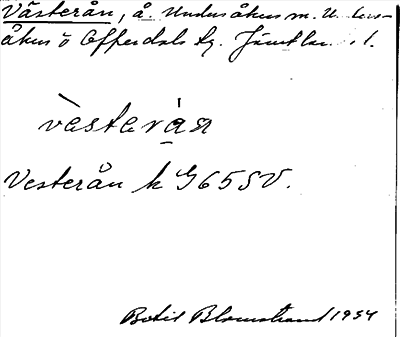 Västerån, å. Undersåkers sn. Unders-
åkers o Offerdals tg. Jämtlan . l.
vàsterán
Vesterån k G 65 SV.
Botil Blomstrand 1934